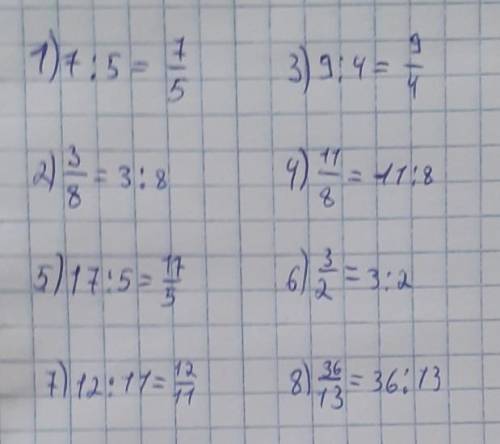 1) 7 : 5 = 7/5
3) 9 : 4 = 9/4
2) 3/8 = 3 : 8
4) 11/8 = 11 : 8
5) 17 : 5 = 17/5
6) 3/2 = 3 : 2
7) 12 : 11 = 12/11
8) 36/13 = 36 : 13